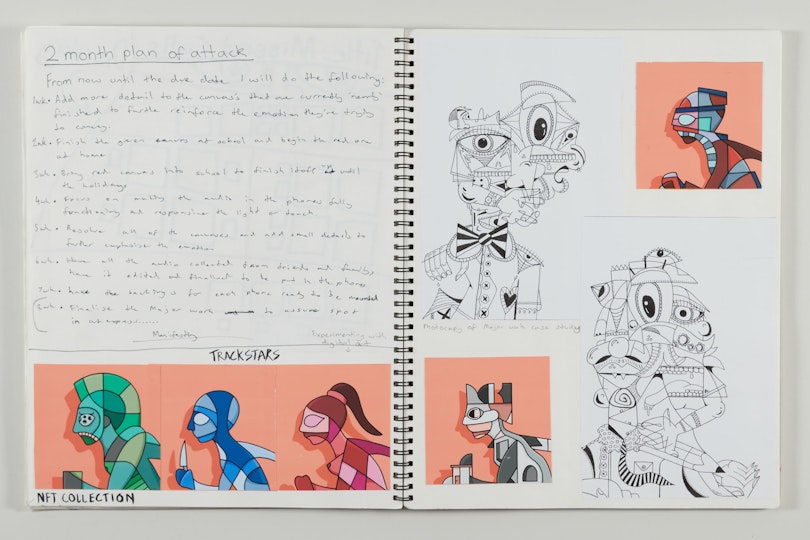 2 month plan of attack
From now until the due date I will do the following:
Add more detail to the canvas's that are currently "nearly"
finished to further reinforce the emotion they're trying
to convey.
Finish the green canvas at school and begin the red one
at home
Bring red canvas into school to finish it off until
the holidays
Focus on making the audio in the phones fully
functioning and responsive to light or touch
Resolve all of the canvases and add small details to
further emphasise the emotion
Have all the audio collected from friends and families
have it edited and finalised to be put in the phones
have the casings for each phone ready to be mounted
Finalise the Major work to ensure spot
in artexpress
Manifesting
Experimenting with
digital art
TRACKSTARS
NFT COLLECTION
Photocopy of Major work case study